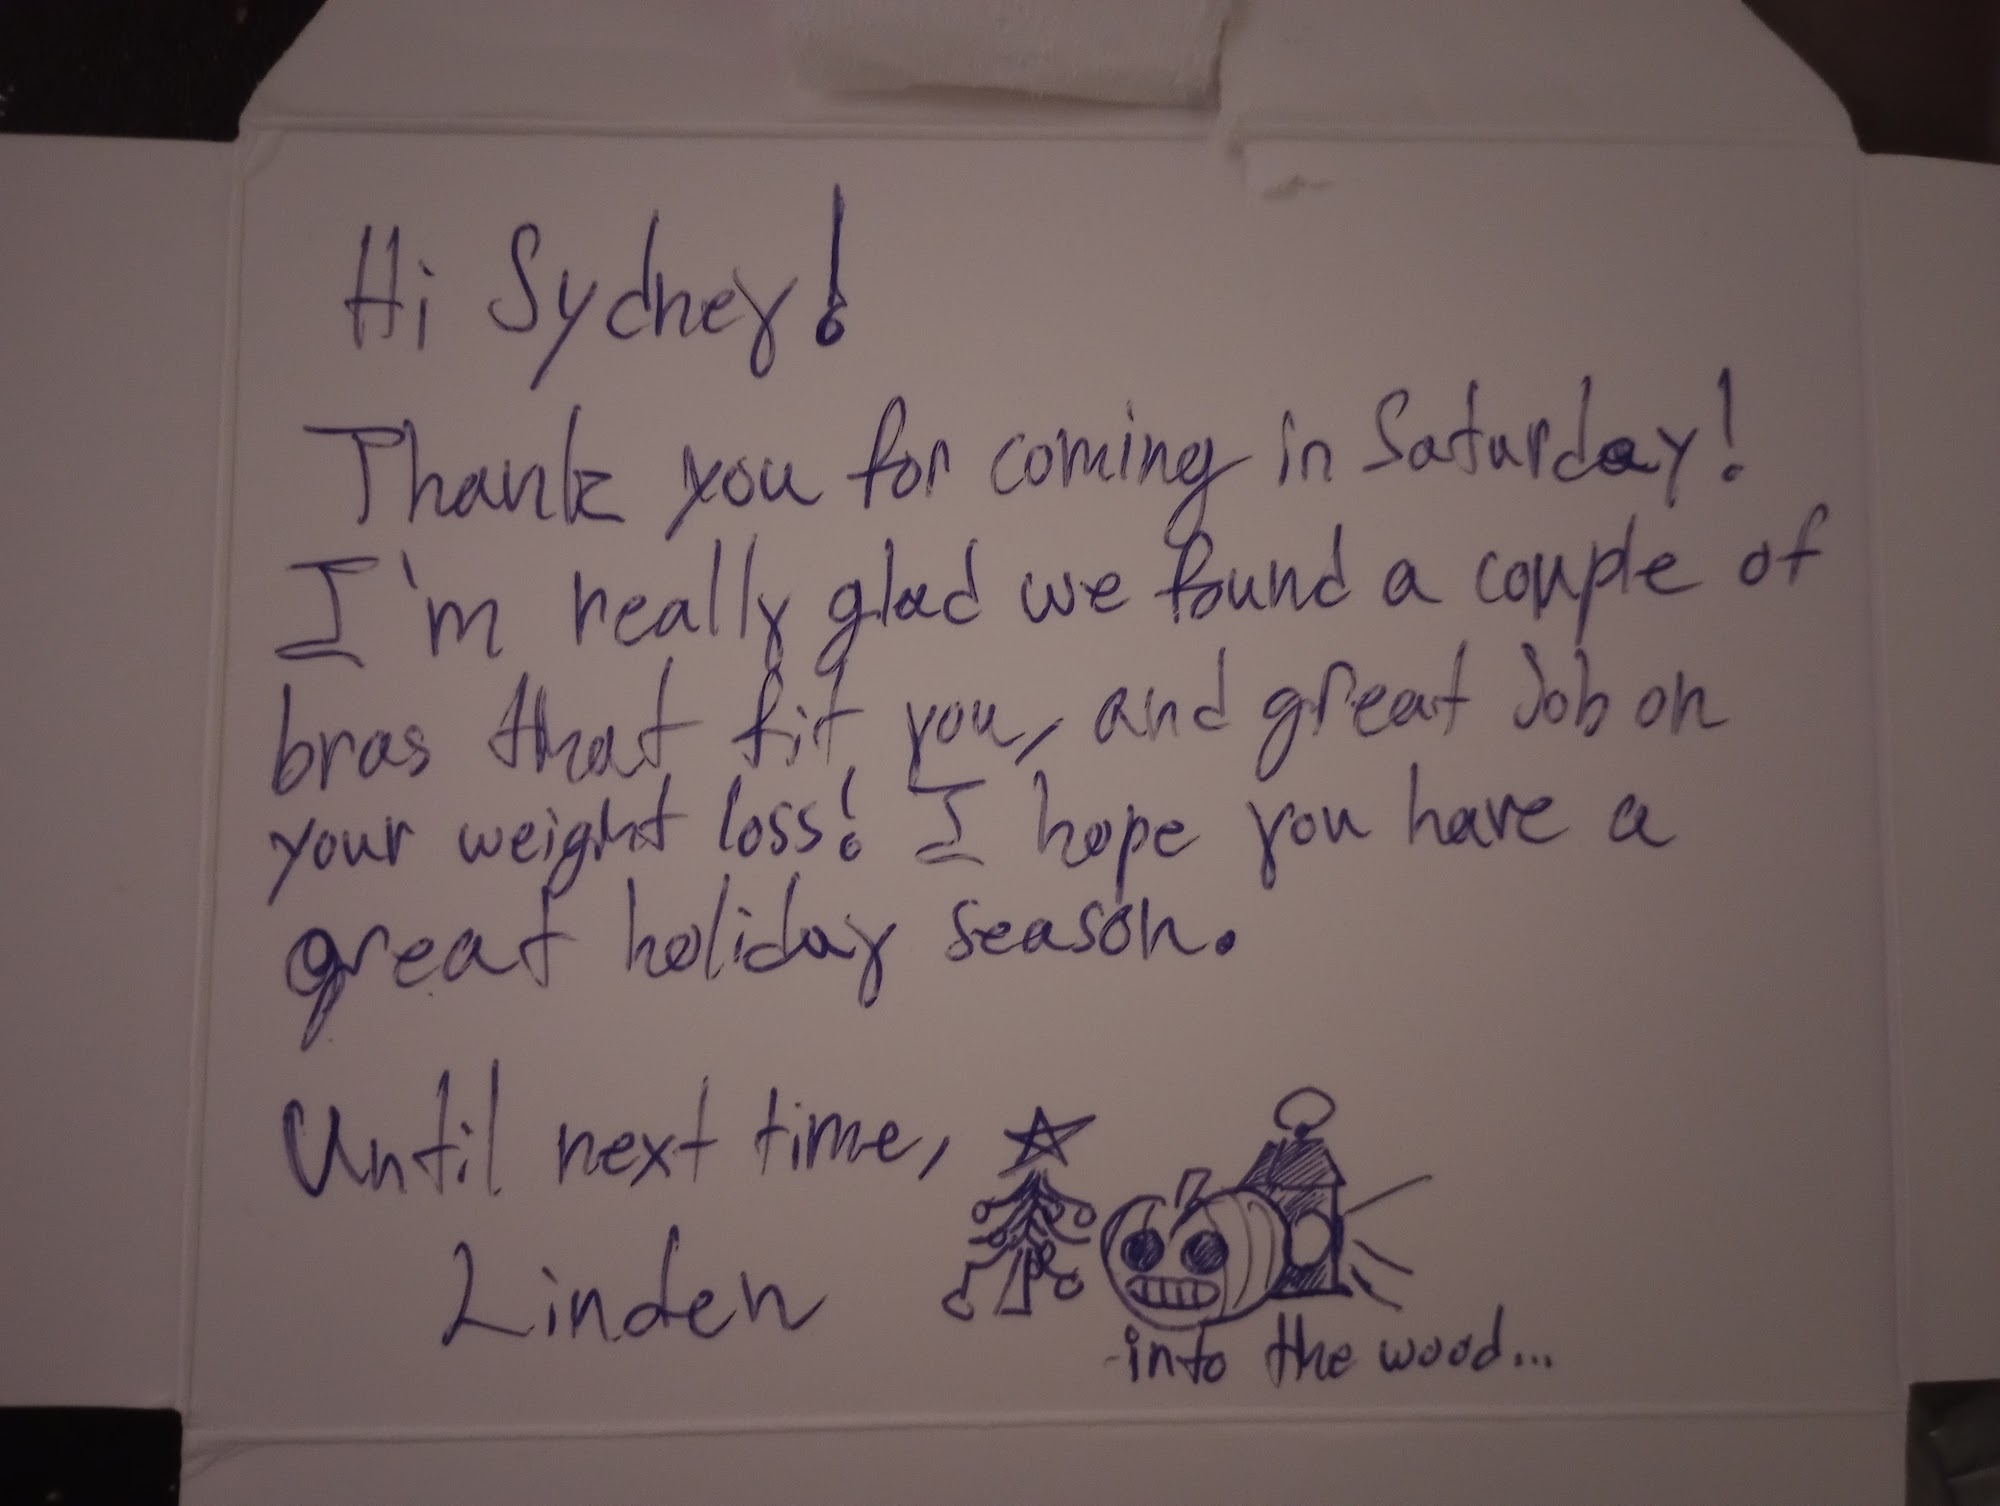 Hi Sydney!
Thank you for coming in Saturday!
I'm really glad we found a couple of
bras that fit you, and great Job on
your weight loss! I hope you have a
great holiday season.
Until next time,
Linden
into the wood...